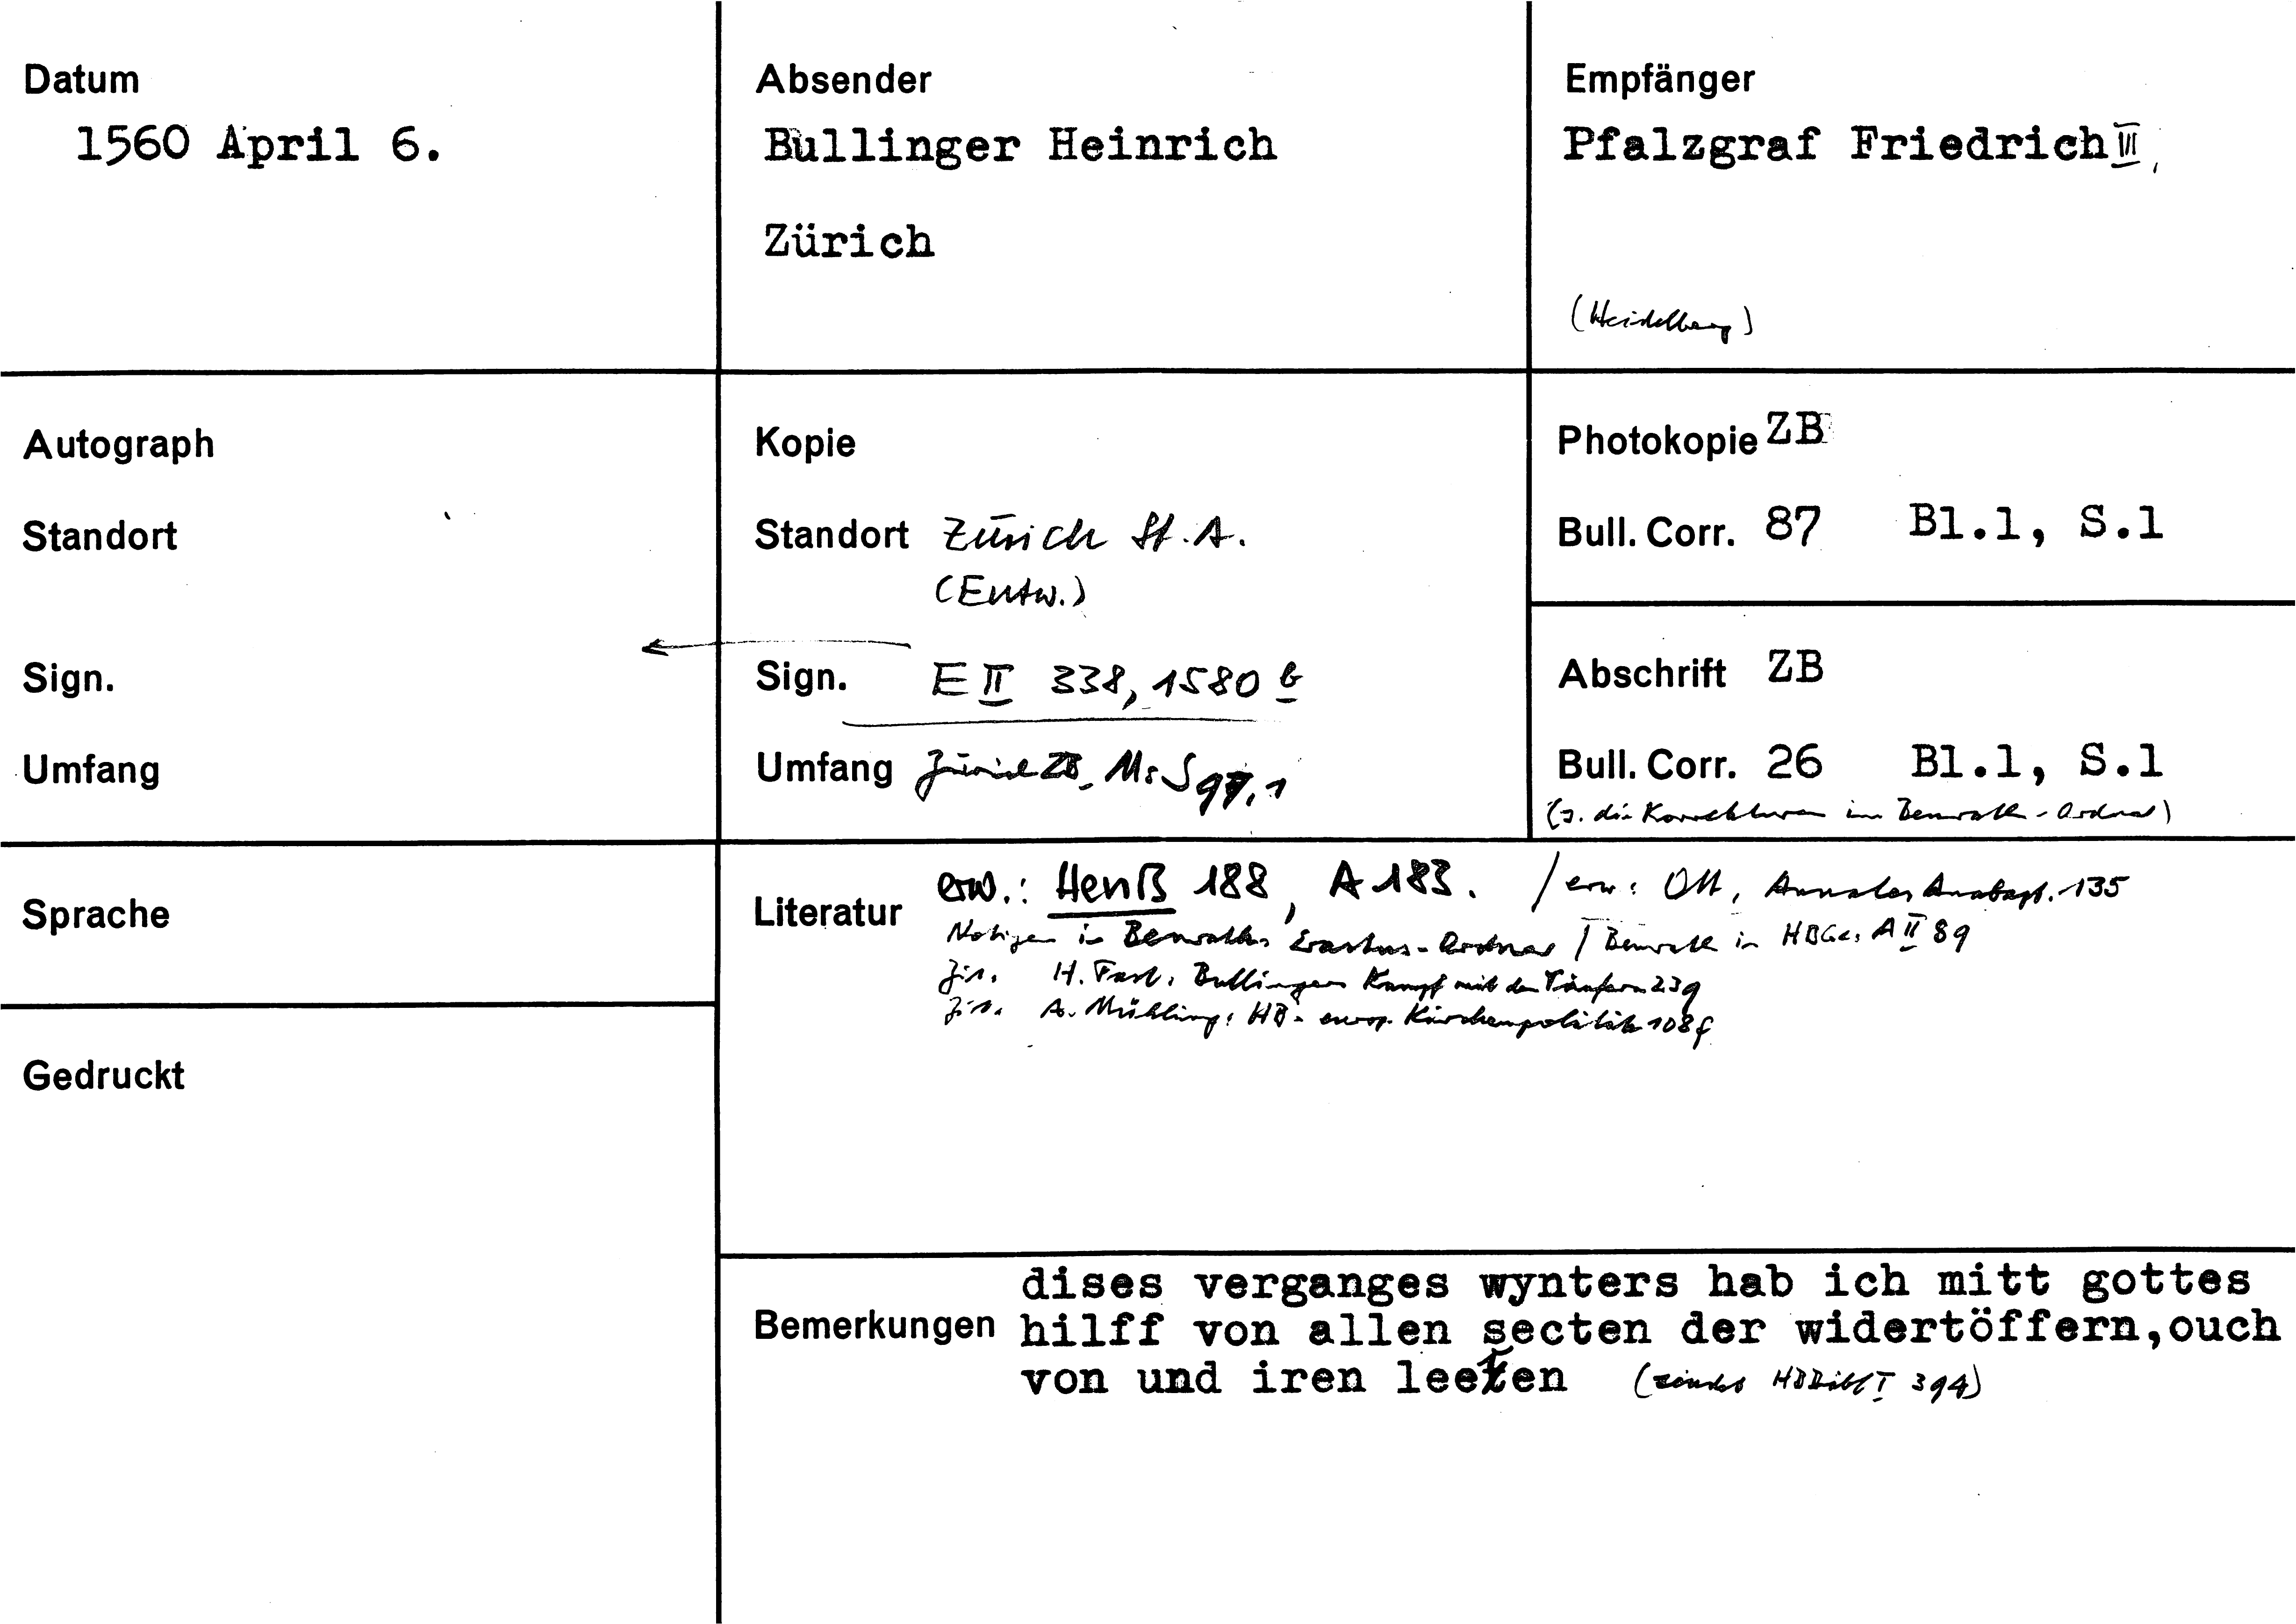 Datum
1560 April 6.
Absender
Bullinger Heinrich
Zürich
Empfänger
Pfalzgraf Friedrich III,
(Heidelberg)
Autograph
Standort
Sign.
Umfang
Kopie
Standort Zürich St.A.
(Entw.)
Sign. E II 338, 1580 b
Umfang Zürich ZB, Ms S 97, 1
Photokopie ZB
Bull. Corr. 87 Bl.1, S.1
Abschrift ZB
Bull. Corr. 26 Bl.1, S.1
(s. die Korrekturen im Benrath-Ordner)
Sprache
Gedruckt
Literatur erw.: Henß 188, A 183. / erw: Ott, Annales Anabapt. 135
Notizen in Benraths Erastus-Ordner / Benrath in HBGes. A II 89
Zit. H. Fast, Bullingers Kampf mit den Täufern 239
Zit. A. Mühling, HB's europ. Kirchenpolitik 108f
Bemerkungen dises verganges wynters hab ich mitt gottes
hilff von allen secten der widertöffern,ouch
von und iren leeren (HBBibl I 394)